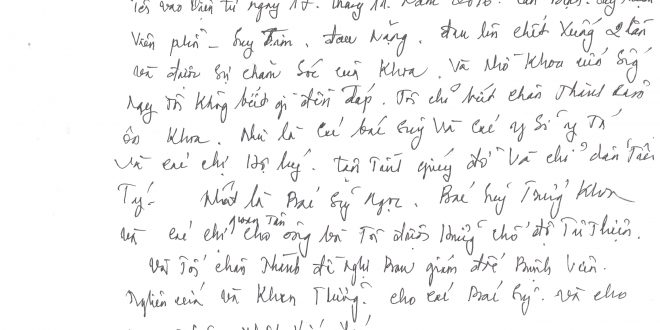 vào Viện từ ngày 17. tháng 11. Năm
Viêm phổi - Suy Tim. đau Nặng. đau lên chết xuống 2 lần
và được sự chăm Sóc của Khoa. Và Nhờ Khoa cứu Sống
Nay tôi Không biết gì đền đáp. Tôi chỉ biết chân Thành cảm
ơn Khoa. Như là các bác Sỹ Và các y Sĩ y Tá
Và các chị Hộ lý. tận Tình giúp đỡ Và chỉ dẫn
Tỷ. Nhất là Bác Sỹ Ngọc. Bác Sỹ Trung Khoa
và các chị cho ông bà Tôi được hưởng chế độ Từ Thiện.
Và Tôi chân Thành đề Nghị Ban giám đốc Bệnh Viện.
Nghiên cứu và Khen Thưởng. cho các Bác Sỹ. và cho